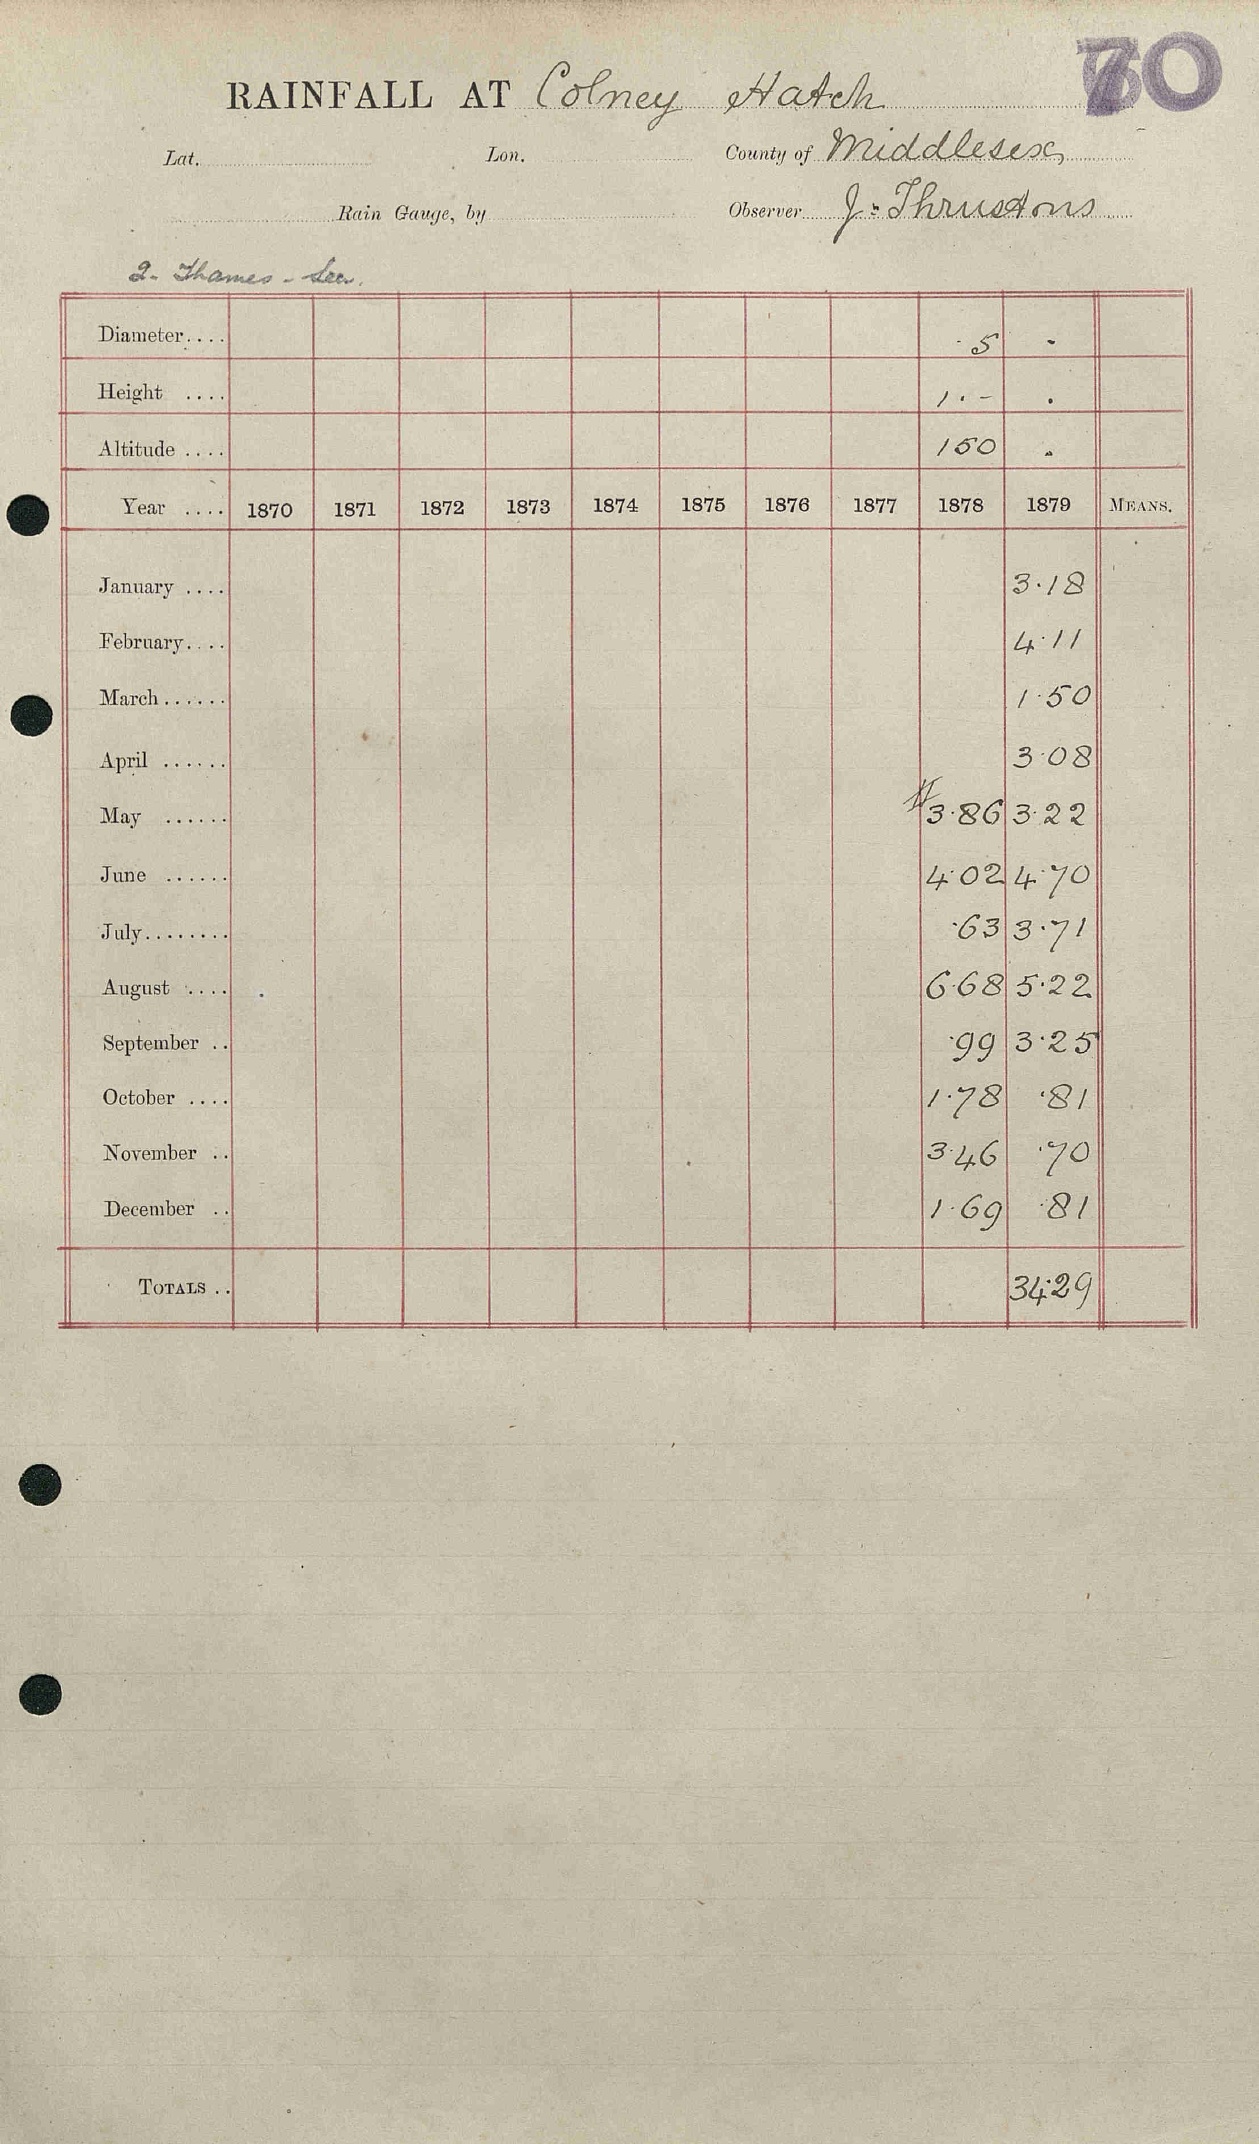 70
RAINFALL AT Colney Hatch
Lat. Lon. County of Middlesex
Rain Gauge, by Observer J. Thrustons
2. Thames - Lea.
Diameter.... 5 .
Height .... 1 . - .
Altitude .... 150 .
Year .... 1870 1871 1872 1873 1874 1875 1876 1877 1878 1879 MEANS.
January .... 3.18
February.... 4.11
March...... 1.50
April ...... 3.08
May ...... 3.86 3.22
June ...... 4.02 4.70
July........ .63 3.71
August .... 6.68 5.22
September .. .99 3.25
October .... 1.78 .81
November .. 3.46 .70
December .. 1.69 .81
TOTALS .. 34.29